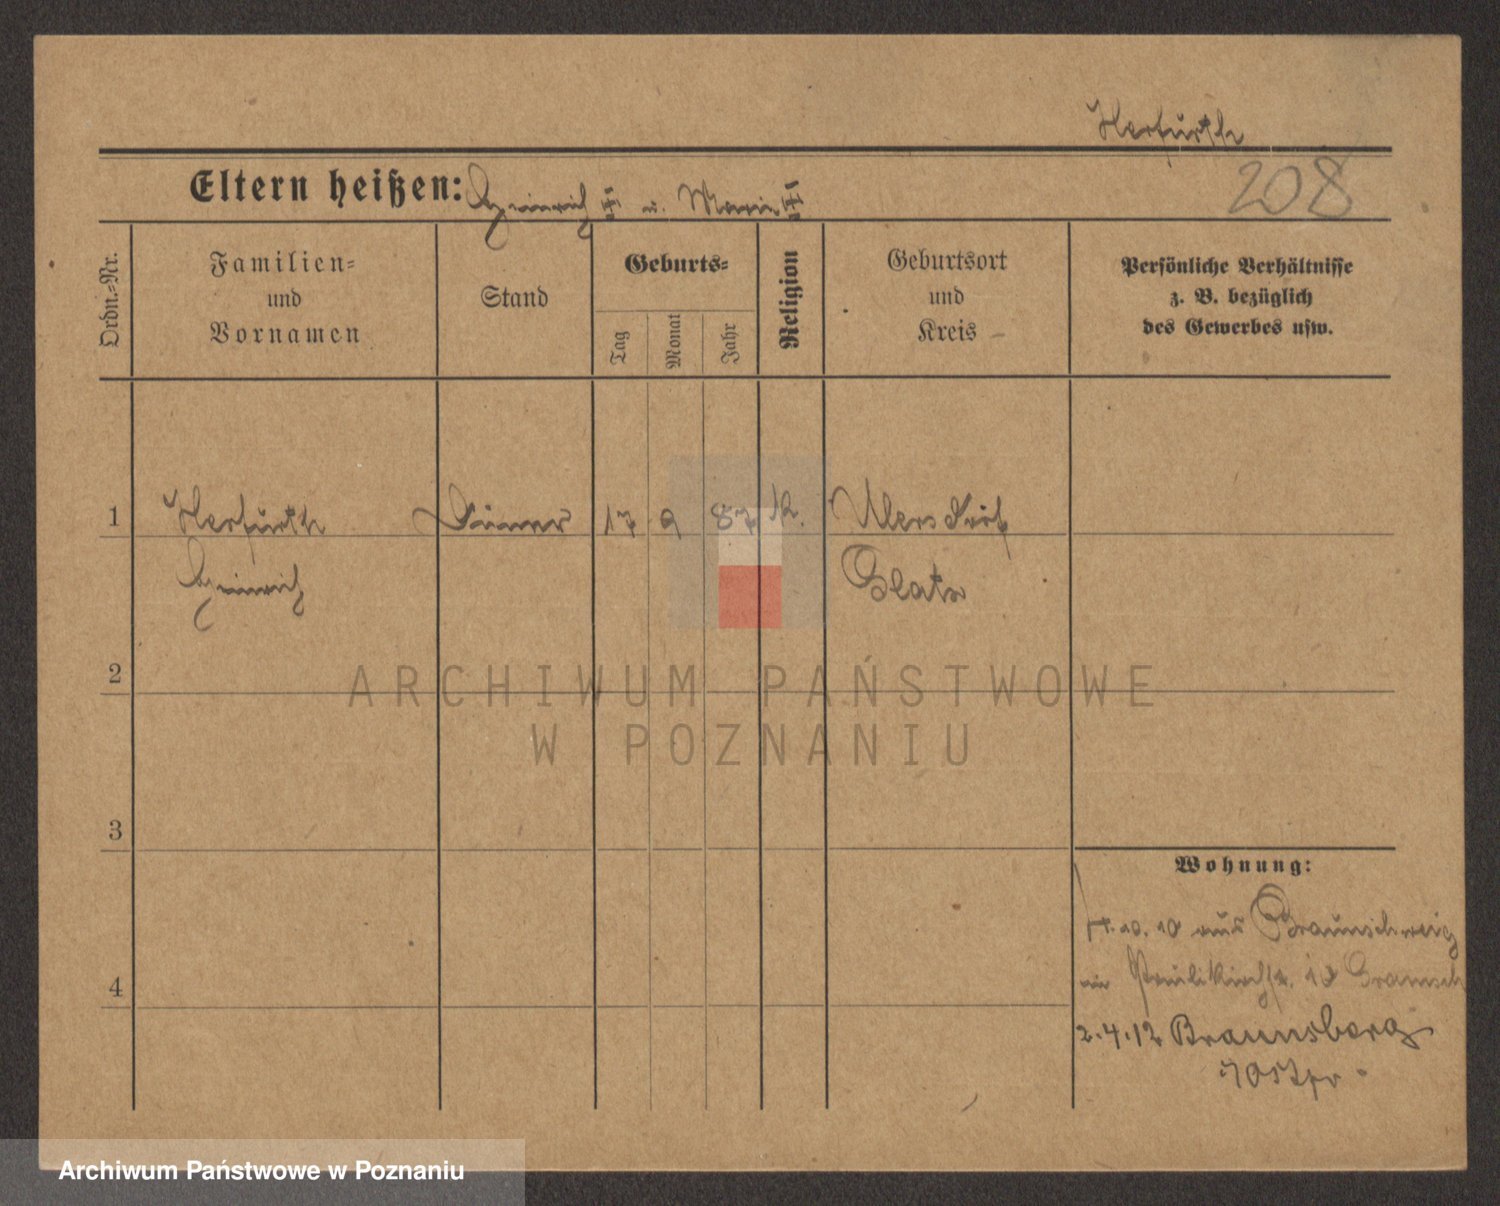 Herfurth
Eltern heißen: Heinrich u. Marie
208
Ordn.=Nr.
Familien=
und
Vornamen
Stand
Geburts=
Tag
Monat
Jahr
Religion
Geburtsort
und
Kreis
Persönliche Verhältnisse
z. B. bezüglich
des Gewerbes usw.
1 Herfurth 17 9 87 k. Ullersdorf
Heinrich Glatz
2
3
4
Wohnung:
10. 10 aus Braunschweig
Paulikirchstr. 10
2.4.12 Braunsberg
Ostpr.
ARCHIWUM PAŃSTWOWE
W POZNANIU
Archiwum Państwowe w Poznaniu